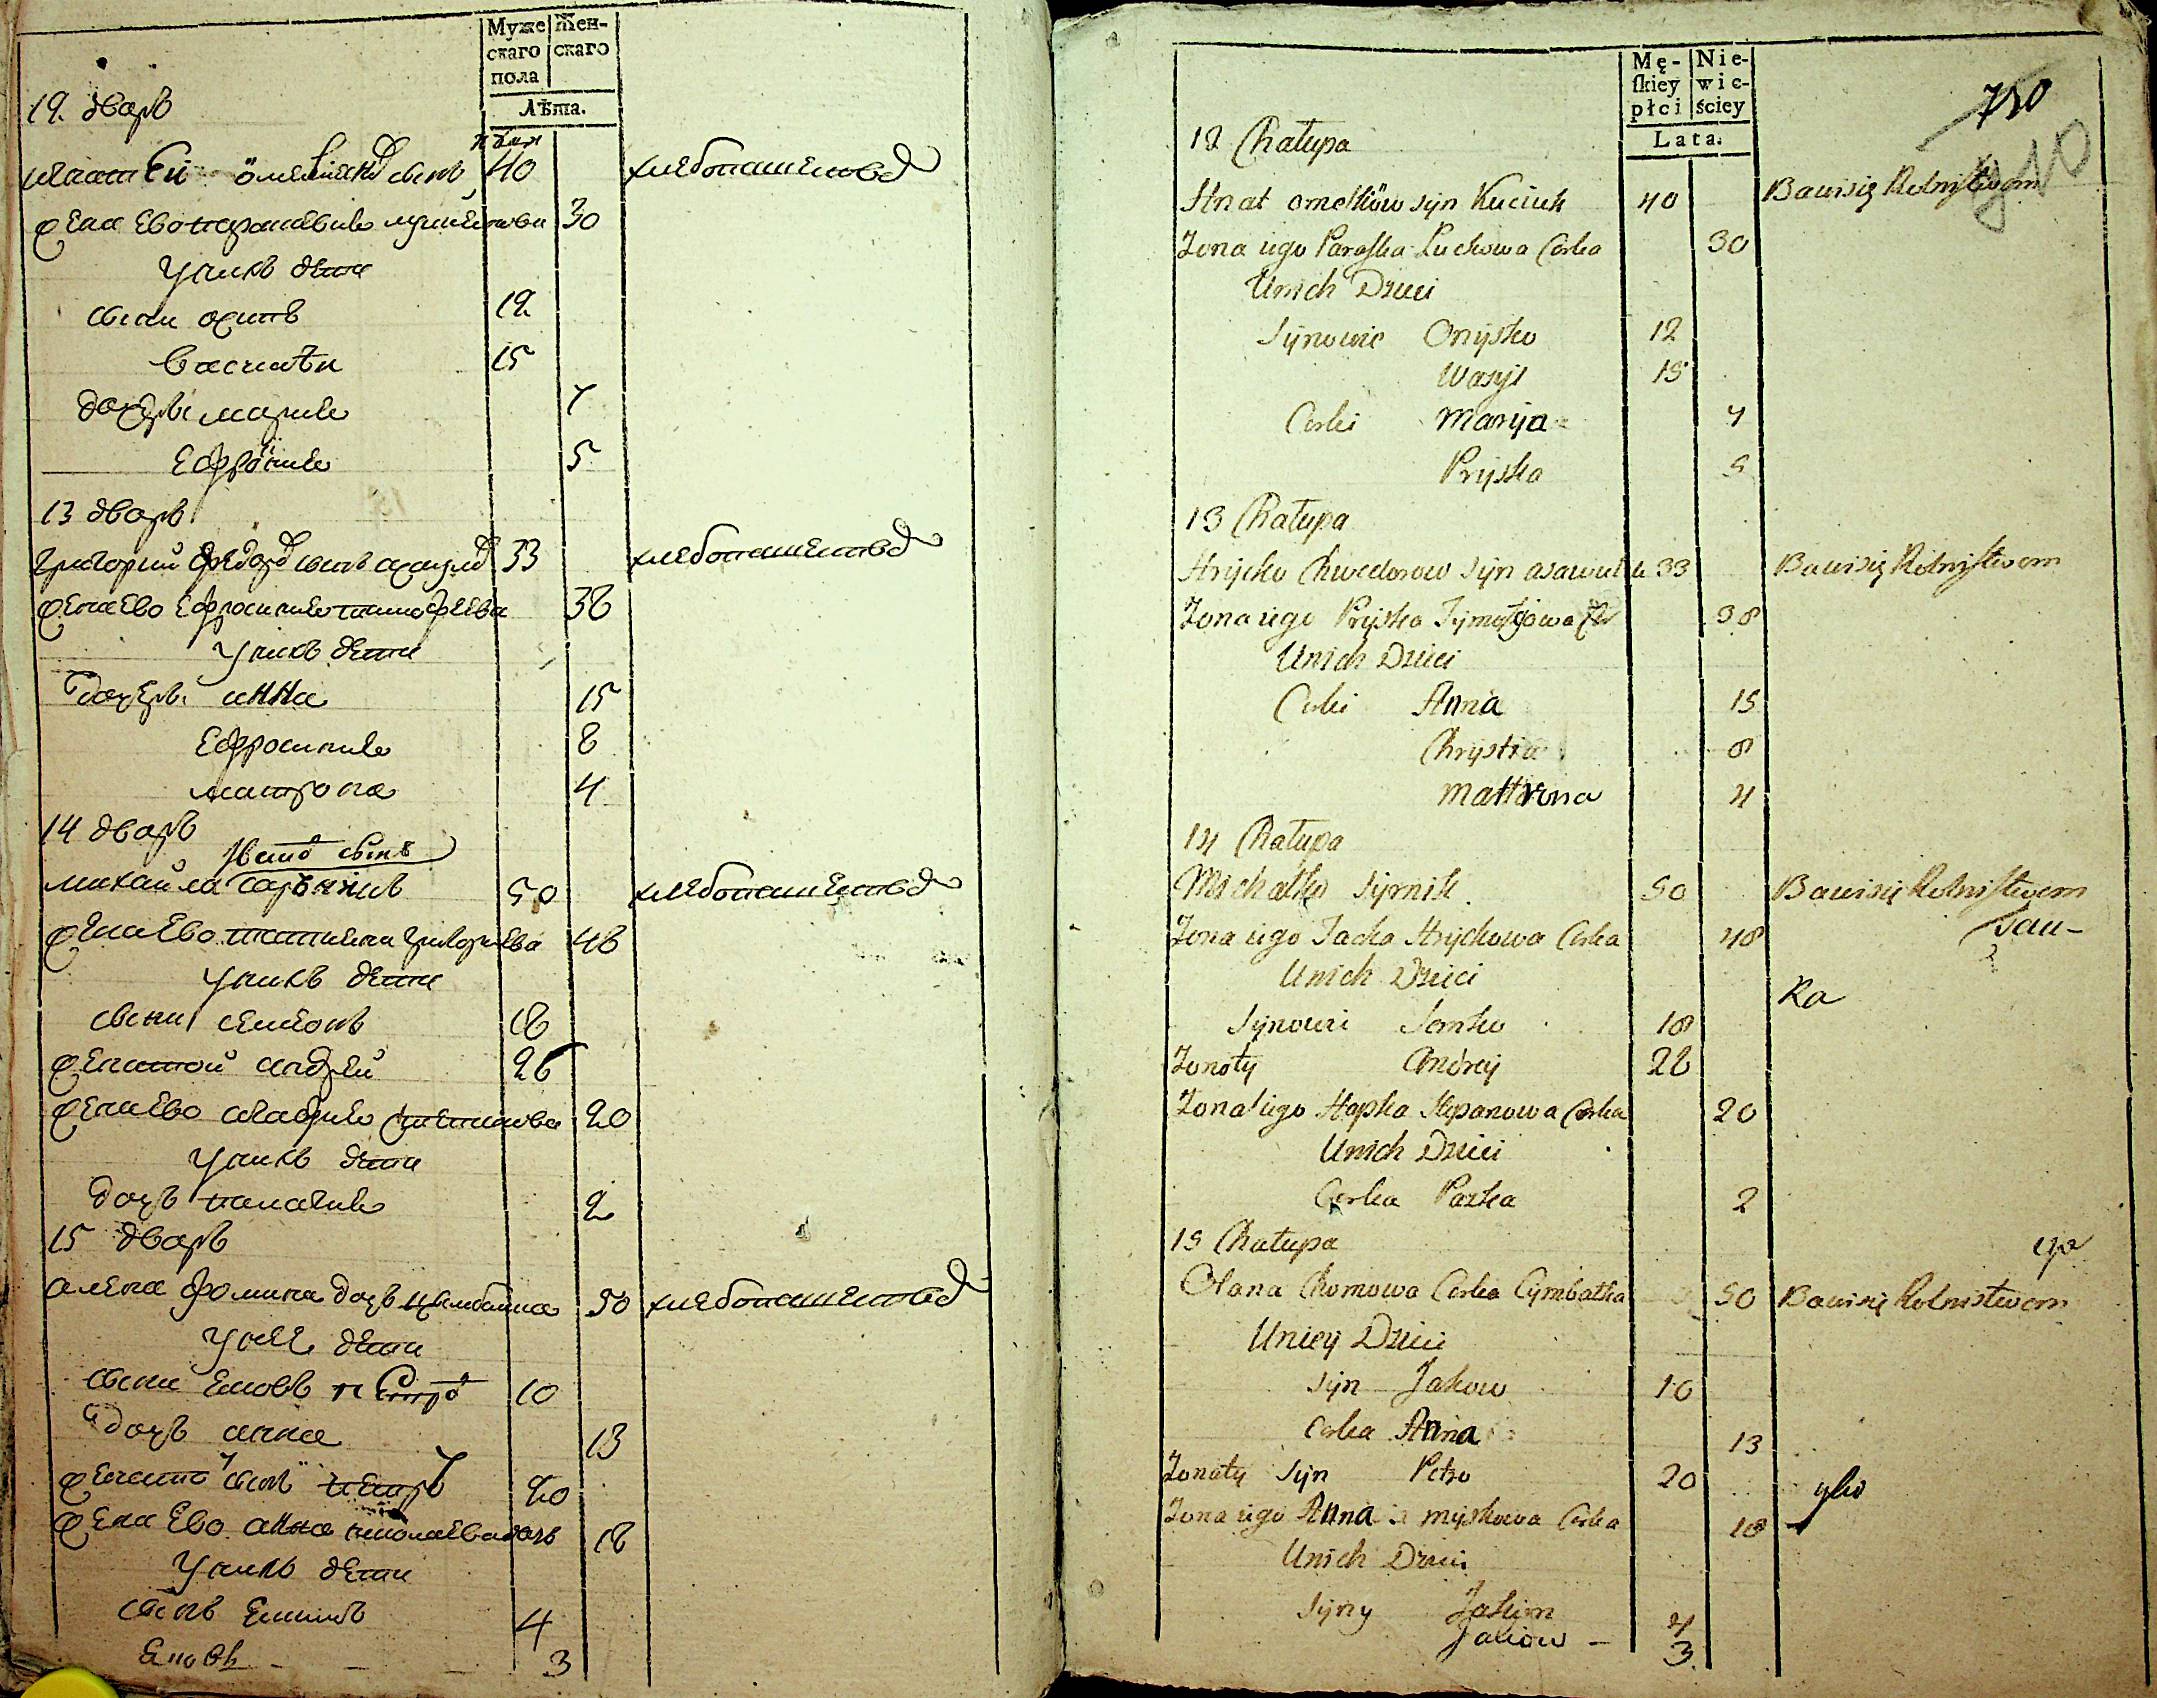 Муже
скаго
пола
Жен-
скаго
Лѣта.
12. дворъ
сынъ 40
хлебопашествомъ
жена ево парасковия 30
у нихъ дети
сыни осипъ 12
василѣй 15
дочери мария 7
Ефросиния 5
13 дворъ
григорий федоровъ сынъ 33
хлебопашествомъ
жена ево Ефросиния тимофеева 38
у нихъ дети
дочери анна 15
Ефросиния 8
матрона 4
14 дворъ
сынъ
михайла 50
хлебопашествомъ
жена ево татияна григорьева 48
у нихъ дети
сыни семионъ 18
женатой андрей 28
жена ево агафия степанова 20
у нихъ дети
дочъ палагия 2
15 дворъ
алена фомина дочъ цымбалка 50
хлебопашествомъ
у нее дети
сыни яковъ 10
дочъ анна 13
женатой сынъ петръ 20
жена ево анна николаева дочъ 18
у нихъ дети
сынъ Екимъ 4
Яковъ - - - 3
Mę-
skiey
płci
Nie-
wie-
ściey
Lata.
750
12 Chałupa
Hnat omelków syn Kuciuk 40
Bawi się Rolnistwem
Zona iego Paraska Luckowa Corka 30
U nich Dzieci
Synowie Onysko 12
Wasyl 15
Corki Marya 7
Pryska 5
13 Chałupa
Hrycko Chwedorow syn 33
Bawi się Rolnistwem
Zona iego Pryska Tymoszowa 38
U nich Dzieci
Corki Anna 15
Chrystia 8
Mattrona 4
14 Chałupa
Michałko Syrnik 50
Bawi się Rolnistwem
Zona iego Jacka Hryckowa Corka 48
U nich Dzieci
Ka
Synowie Semko 18
Zonaty Andrey 28
Zona iego Hapka Stepanowa Corka 20
U nich Dzieci
Corka Pazka 2
15 Chałupa
Olana Chomowa Corka Cymbałka 50
Bawi się Rolnistwem
U niey Dzieci
Syn Jakow 10
Corka Anna 13
Zonaty Syn Petro 20
Zona iego Anna myskowa Corka 18
U nich Dzieci
Syny Jakim 4
Jakow - 3